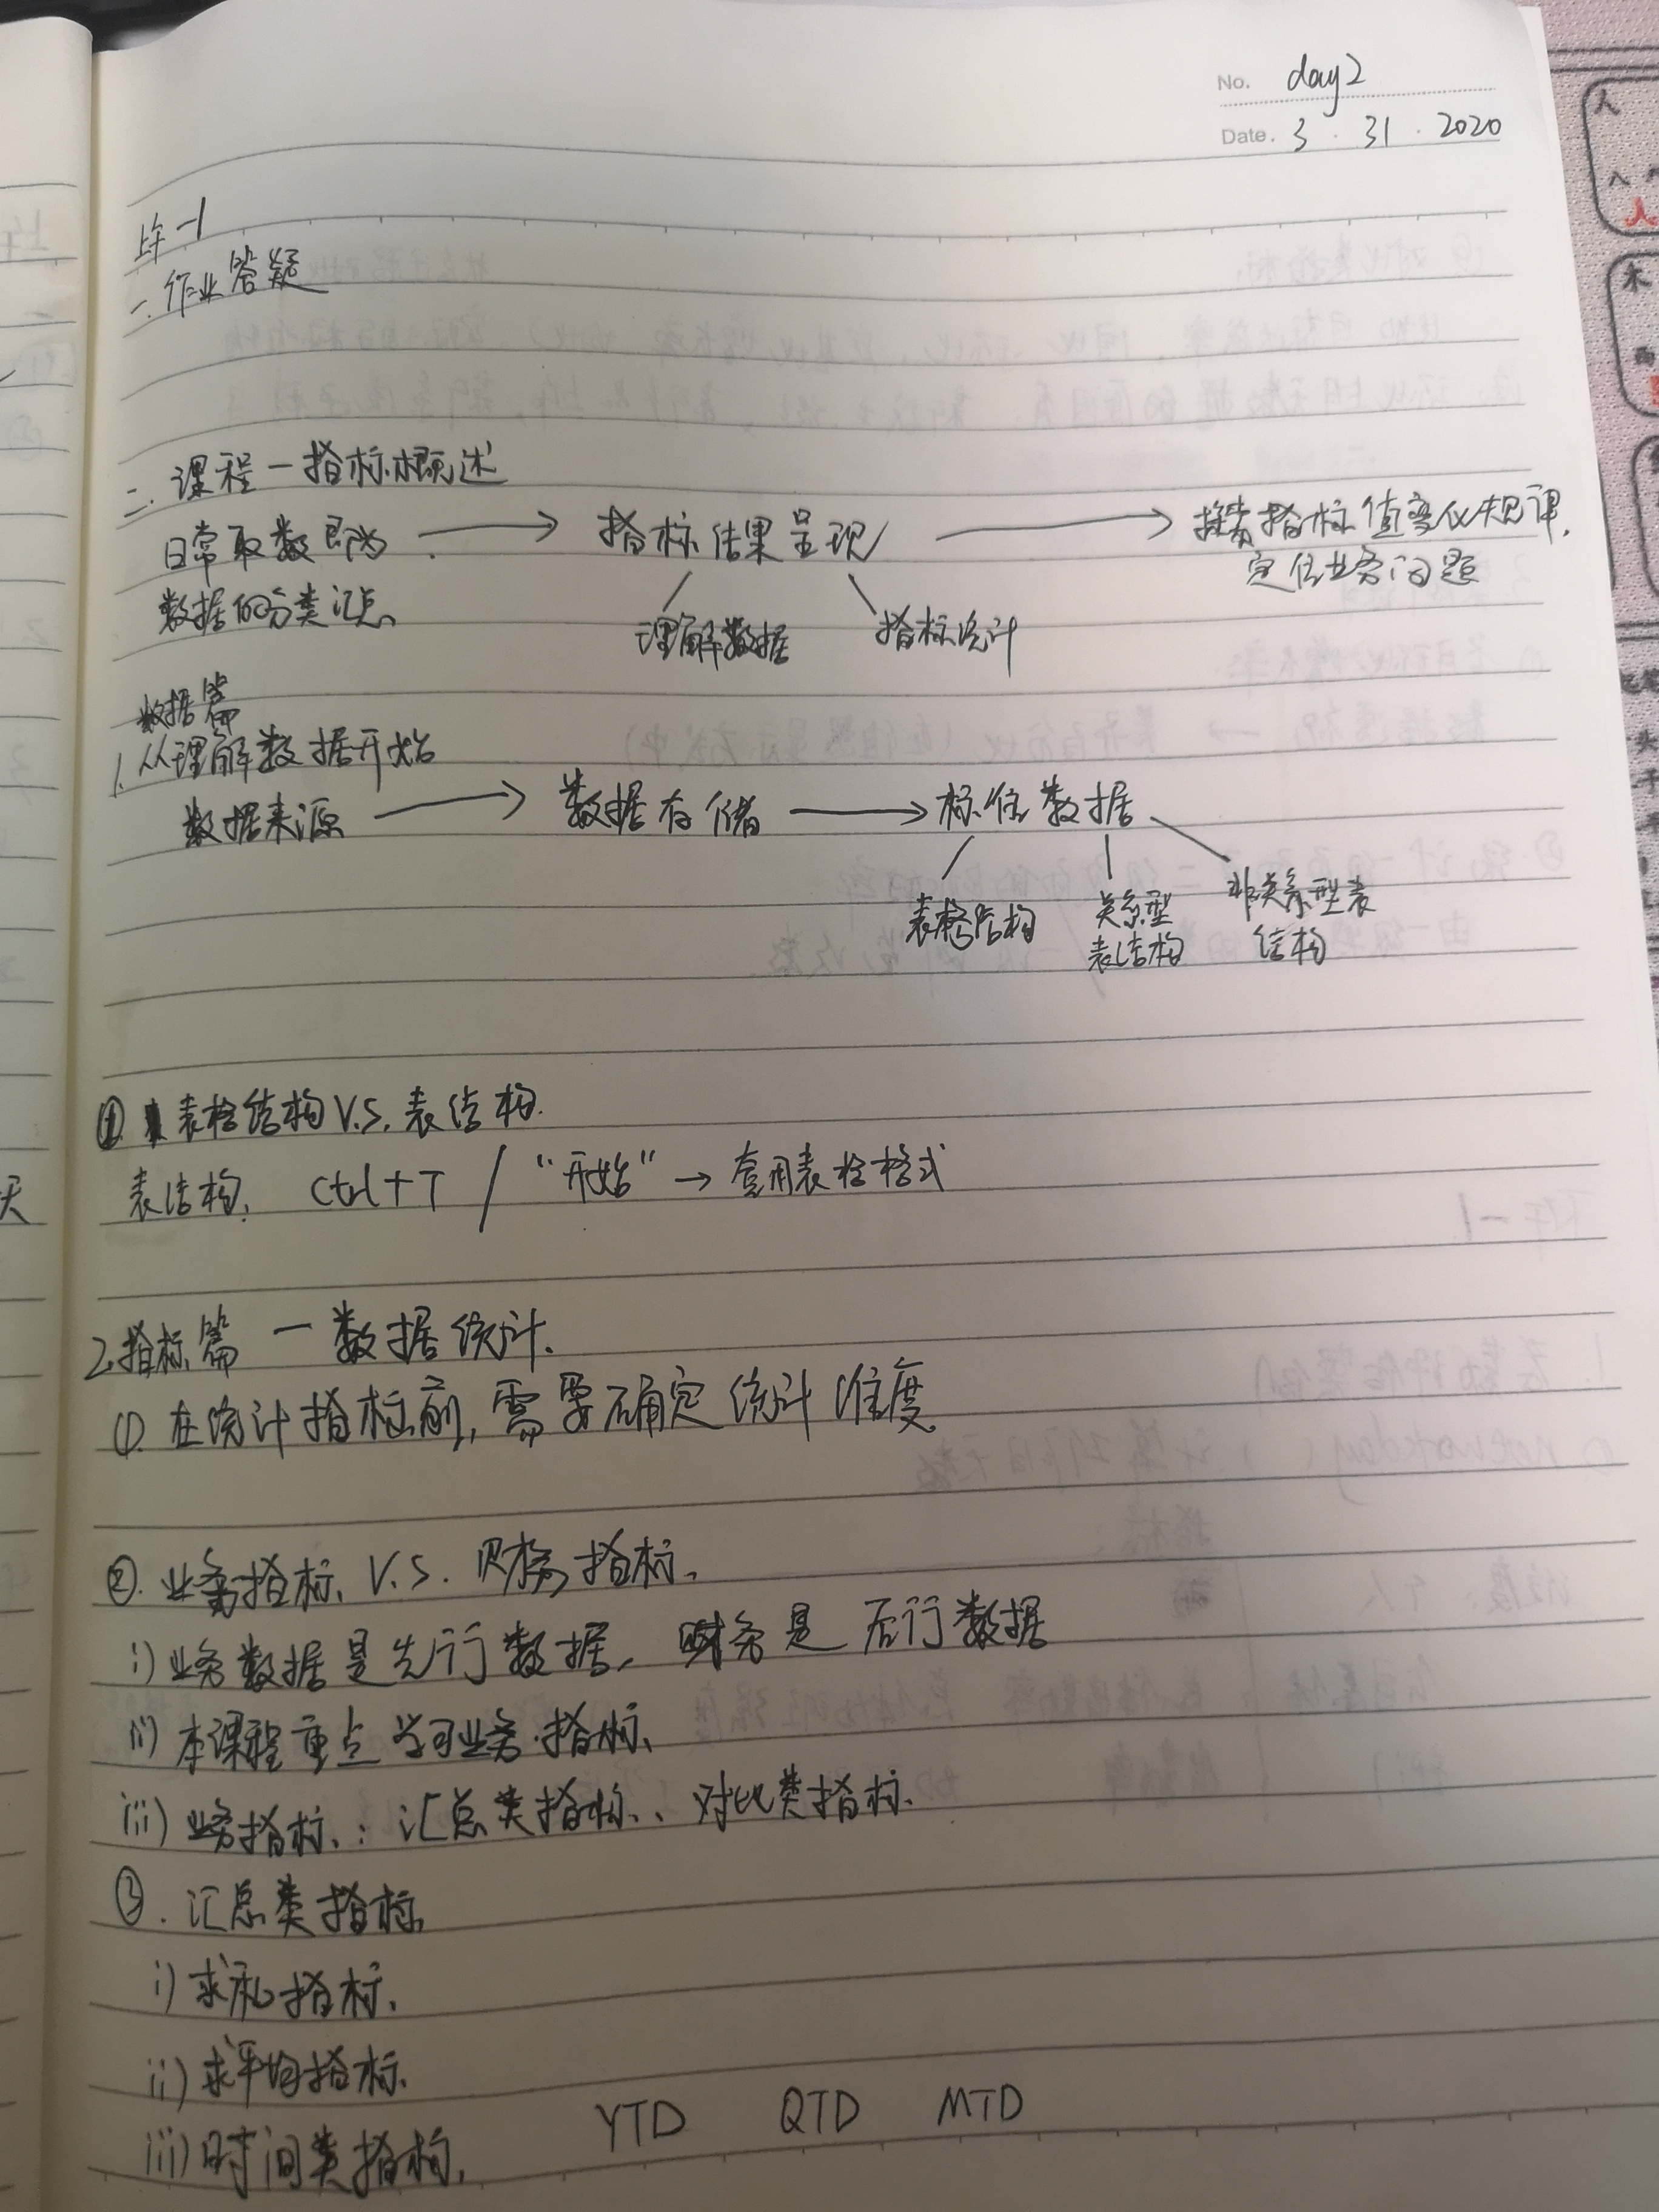 No. day2
Date. 3 · 31 · 2020
上午-1
一. 作业答疑
二. 课程一指标概述
日常取数即为 → 指标结果呈现 → 探索指标值变化规律,
数据的分类汇总 定位业务问题
理解数据 指标统计
数据篇
1. 从理解数据开始
数据来源 → 数据存储 → 标准数据
表格结构 关系型 非关系型表
表结构 结构
① 表格结构 V.S. 表结构.
表结构. Ctrl+T / “开始” → 套用表格格式
2. 指标篇 一 数据统计.
①. 在统计指标前, 需要确定统计维度
②. 业务指标 V.S. 财务指标.
i) 业务数据是先行数据, 财务是后行数据
ii) 本课程重点学习业务指标.
iii) 业务指标: 汇总类指标、对比类指标.
③. 汇总类指标
i) 求和指标.
ii) 求平均指标.
iii) 时间类指标. YTD QTD MTD